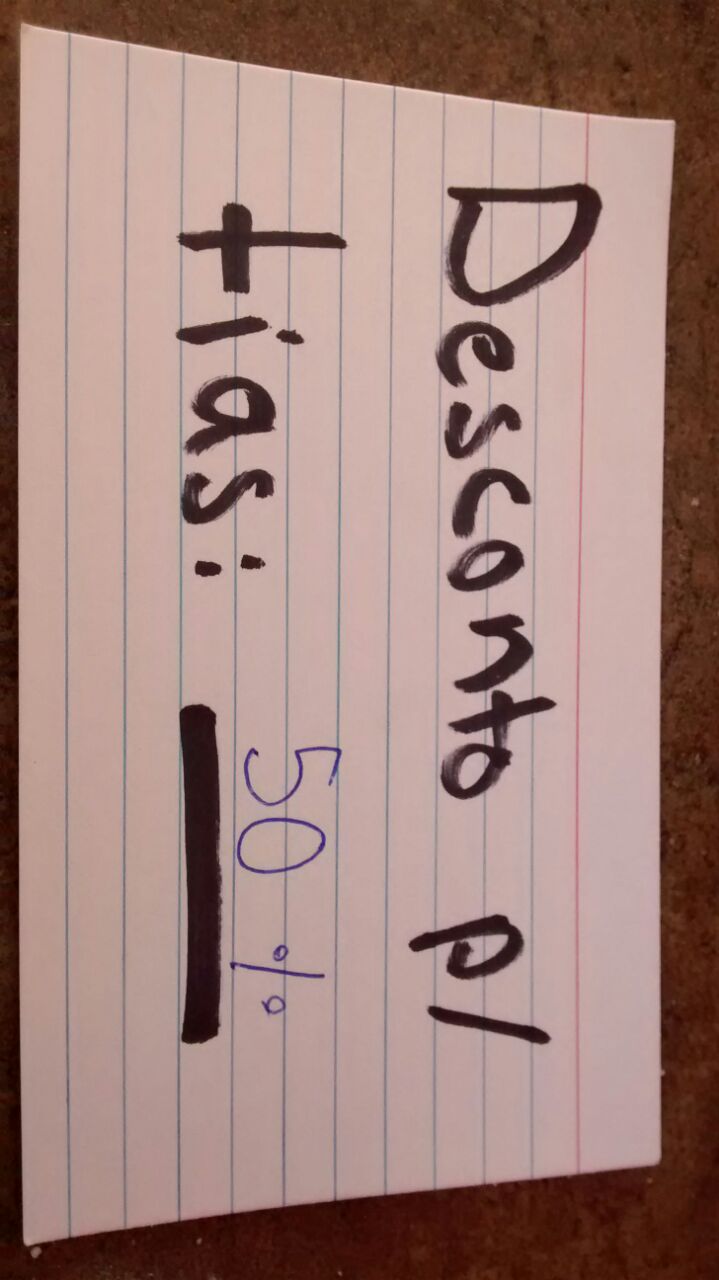 Desconto p/
tias: 50 %